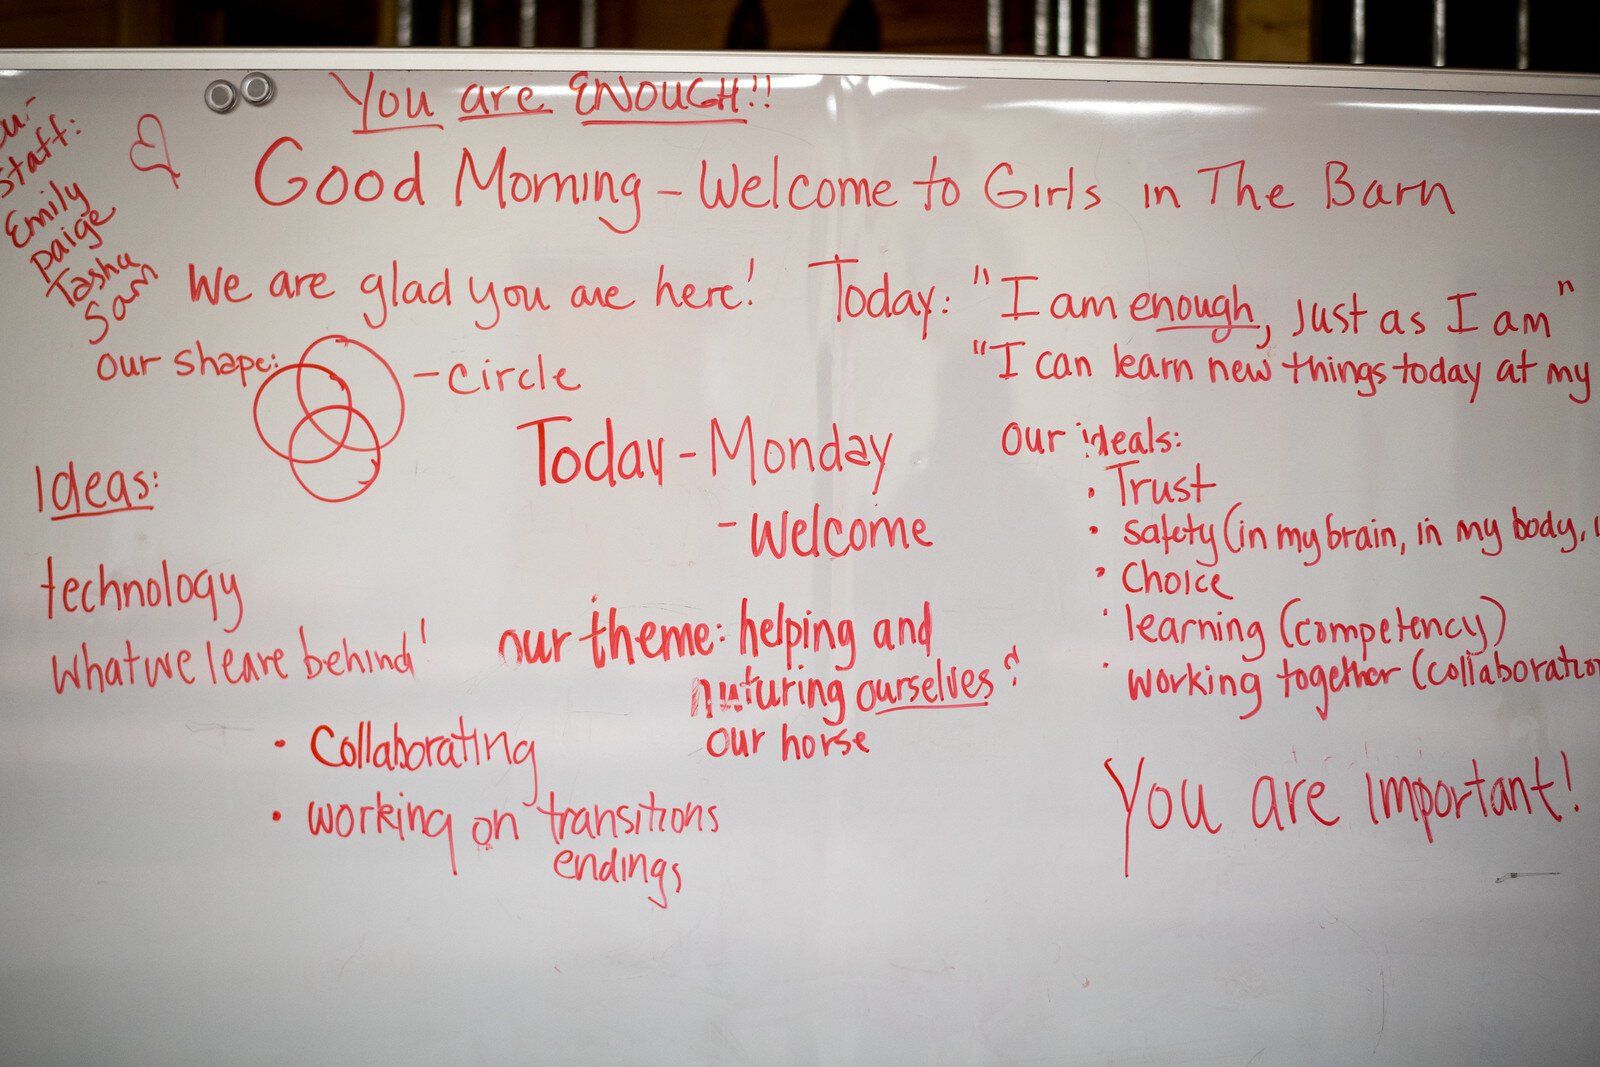 You are ENOUGH!!
Good Morning - Welcome to Girls in The Barn
staff:
Emily
paige
Tasha
Sam
We are glad you are here!
Today: "I am enough, just as I am"
"I can learn new things today at my
our shape:
- circle
Today - Monday
- Welcome
our ideals:
• Trust
• safety (in my brain, in my body,
• Choice
• learning (competency)
• working together (collaboratio
Ideas:
technology
what we leave behind!
our theme: helping and
nurturing ourselves &
our horse
• Collaborating
• working on transitions
endings
You are important!